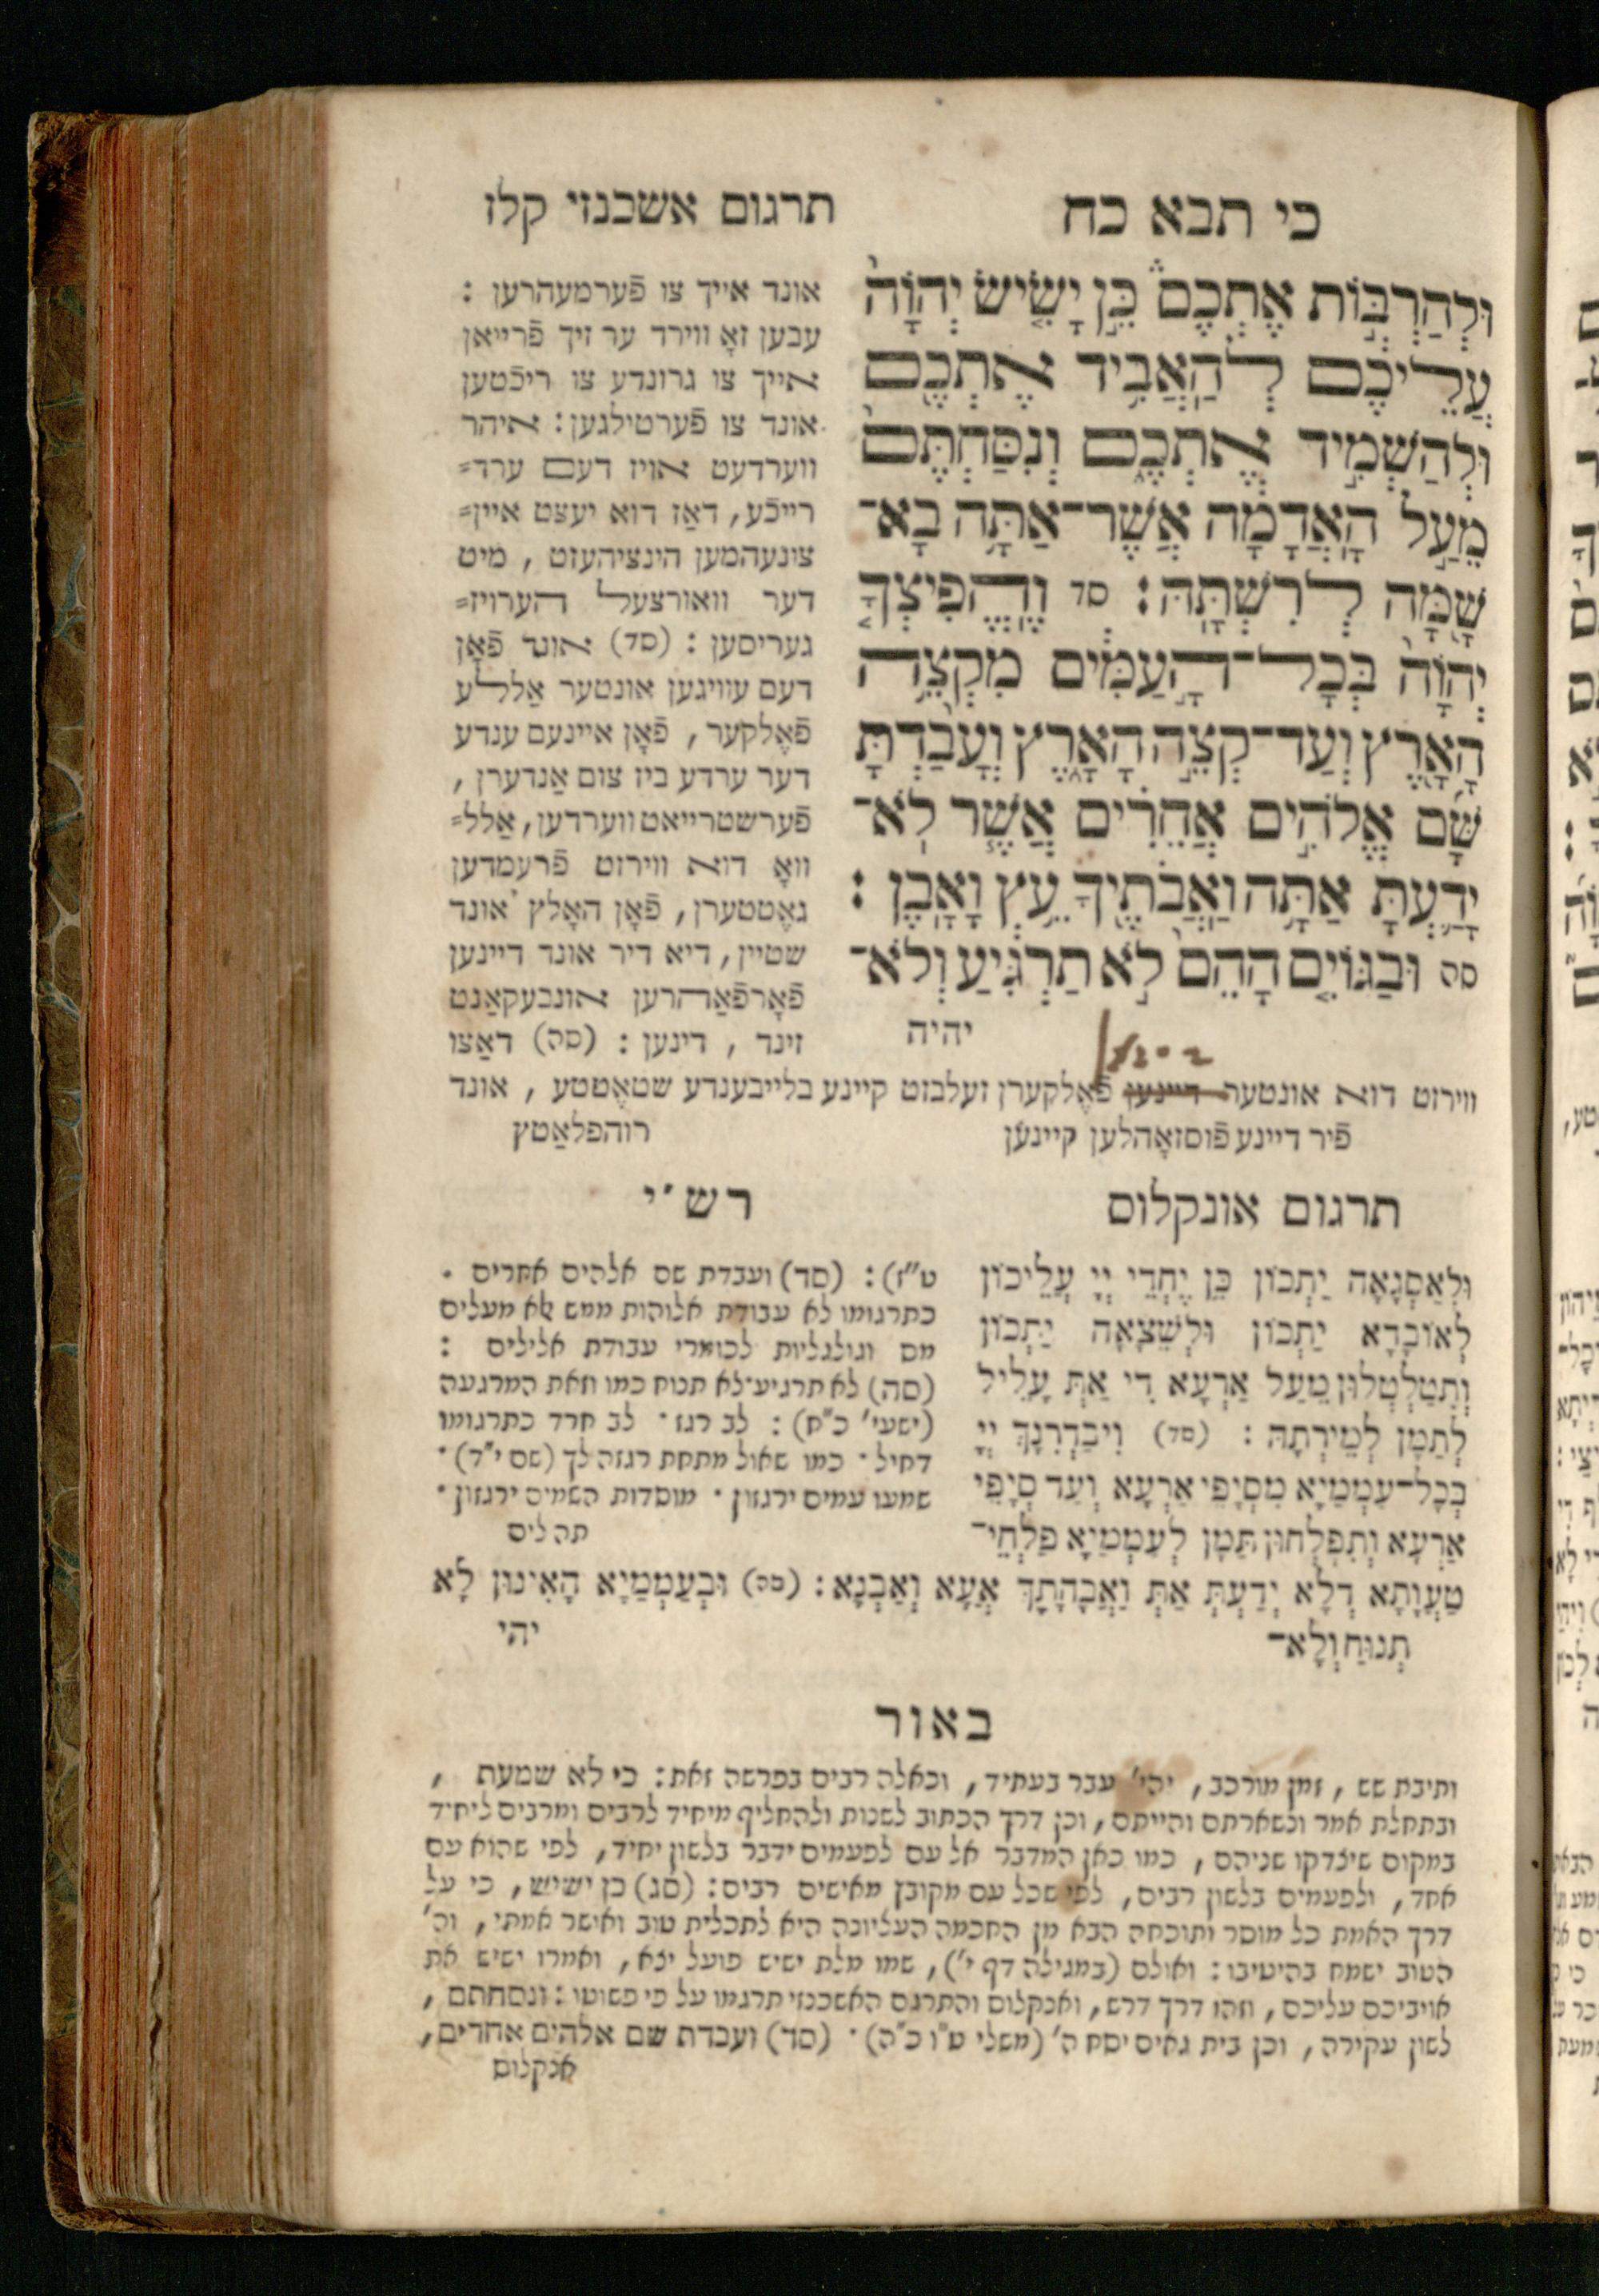 כי תבא כח
תרגום אשכנזי קלז
וּלְהַרְבּ֣וֹת אֶתְכֶם֒ כֵּ֣ן יָשִׂ֤ישׂ יְהוָֹה֙
עֲלֵיכֶ֔ם לְהַאֲבִ֥יד אֶתְכֶ֖ם
וּלְהַשְׁמִ֣יד אֶתְכֶ֑ם וְנִסַּחְתֶּם֙
מֵעַ֣ל הָאֲדָמָ֔ה אֲשֶׁר־אַתָּ֥ה בָא־
שָׁ֖מָּה לְרִשְׁתָּֽהּ׃ סד וֶהֱפִֽיצְךָ֤
יְהוָֹה֙ בְּכָל־הָ֣עַמִּ֔ים מִקְצֵ֥ה
הָאָ֖רֶץ וְעַד־קְצֵ֣ה הָאָ֑רֶץ וְעָבַ֨דְתָּ
שָּׁ֜ם אֱלֹהִ֣ים אֲחֵרִ֗ים אֲשֶׁ֧ר לֹא־
יָדַ֛עְתָּ אַתָּ֥ה וַאֲבֹתֶ֖יךָ עֵ֥ץ וָאָֽבֶן׃
סה וּבַגּוֹיִ֤ם הָהֵם֙ לֹ֣א תַרְגִּ֔יעַ וְלֹא־
יהיה
אונד אייך צו פֿערמעהרען :
עבען זאָ ווירד ער זיך פֿרייאן
אייך צו גרונדע צו ריכֿטען
אונד צו פֿערטילגען: איהר
ווערדעט אויז דעם ערד=
רייכֿע, דאַז דוא יעצט איין=
צינעהמען הינציהעזט , מיט
דער וואורצעל הערויז=
געריסען : (סד) אונד פֿאָן
דעם עוויגען אונטער אַללע
פֿאָלקער, פֿאָן איינעם ענדע
דער ערדע ביז צום אַנדערן ,
פֿערשטרייאט ווערדען, אַלל=
וואָ דוא ווירזט פֿרעמדען
געֶטטערן, פֿאָן האָלץ אונד
שטיין, דיא דיר אונד דיינען
פֿאָרפֿאַהרען אונבעקאַנט
זינד , דינען : (סה) דאַצו
ווירזט דוא אונטער דיינען פֿאָלקערן זעלבזט קיינע בלייבענדע שטאָטטע , אונד
פֿיר דיינע פֿוסזאָהלען קיינען
רוהפלאַטץ
תרגום אונקלוס
וּלְאַסְגָאָה יַתְכוֹן כֵּן יֶחֱדֵי יְיָ עֲלֵיכוֹן
לְאוֹבָדָא יַתְכוֹן וּלְשֵׁצָאָה יַתְכוֹן
וְתִטַלְטְלוּן מֵעַל אַרְעָא דִי אַתְּ עָלֵיל
לְתַמָּן לְמֵירְתָהּ : (סד) וִיבַדְרִנָךְ יְיָ
בְּכָל־עַמְמַיָא מִסְיָפֵי אַרְעָא וְעַד סְיָפֵי
אַרְעָא וְתִפְלְחוּן תַּמָּן לְעַמְמַיָא פַלְחֵי־
טַעֲוָתָא דְלָא יְדַעְתְּ אַתְּ וַאֲבָהָתָךְ אָעָא וְאַבְנָא: (סה) וּבְעַמְמַיָא הָאִינוּן לָא
תְנוּחַ וְלָא־
יהי
רש״י
ט״ז): (סד) ועבדת שם אלהים אחרים .
כתרגומו לא עבודת אלוהות ממש אלא מעלים
מס וגולגליות לכומרי עבודת אלילים :
(סה) לא תרגיע־לא תנוח כמו וזאת המרגעה
(ישעי׳ כ״ח): לב רגז · לב חרד כתרגומו
דחיל · כמו שאול מתחת רגזה לך (שם י״ד) ·
שמעו עמים ירגזון · מוסדות השמים ירגזון ·
תהלים
באור
ותיבת שש , זמן מורכב, יהי׳ עבר בעתיד, וכאלה רבים בפרשה זאת: כי לא שמעת ,
ובתחלת אמר ונשארתם והייתם, וכן דרך הכתוב לשנות ולהחליף מיחיד לרבים ומרבים ליחיד
במקום שיצדקו שניהם, כמו כאן המדבר אל עם לפעמים ידבר בלשון יחיד, לפי שהוא עם
אחד, ולפעמים בלשון רבים, לפי שכל עם מקובץ מאישים רבים: (סג) כן ישיש, כי על
דרך האמת כל מוסר ותוכחה הבא מן החכמה העליונה היא לתכלית טוב ואושר אמתי, וה׳
הטוב ישמח בהיטיבו: ואולם (במגילה דף י׳), שמו מלת ישיש פועל יצא, ואמרו ישיש את
אויביכם עליכם, וזהו דרך דרש, ואנקלום והתרגם האשכנזי תרגמו על פי פשוטו: ונסחתם,
לשון עקירה, וכן בית גאים יסח ה׳ (משלי ט״ו כ״ה) · (סד) ועבדת שם אלהים אחרים,
אנקלום